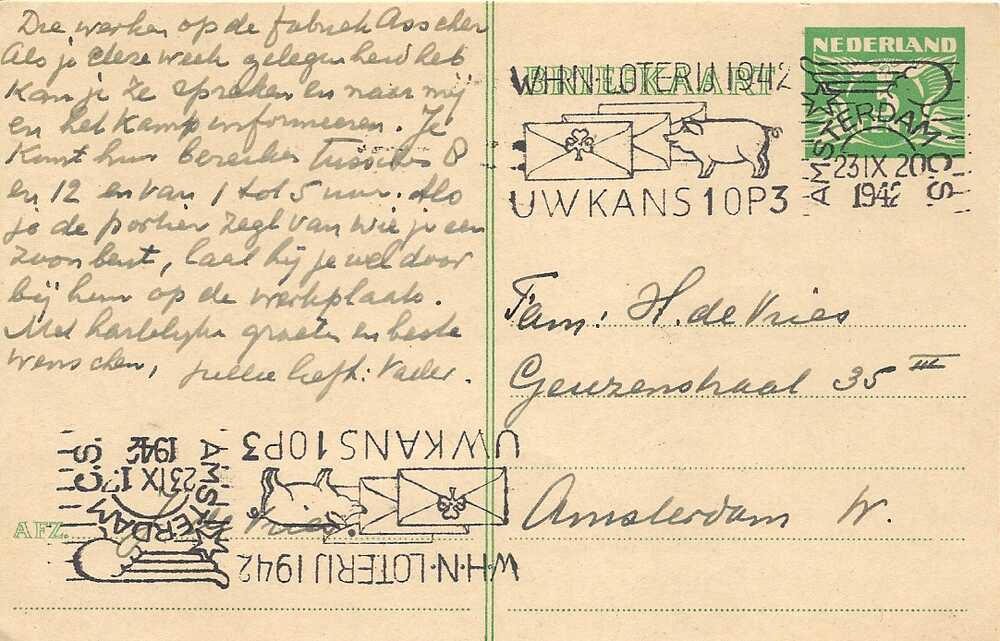 Die werken op de fabriek Asscher
Als je deze week gelegenheid hebt
kan je ze spreken en naar mij
en het kamp informeeren. Je
kunt hun bereiken tusschen 8
en 12 en van 1 tot 5 uur. Als
je de portier zegt van wie je een
zoon bent, laat hij je wel door
bij hun op de werkplaats.
Met hartelijke groeten en beste
wenschen, jullie liefh: Vader.
NEDERLAND
BRIEFKAART
W·H·N·LOTERIJ 1942
UW KANS 1 OP 3
AMSTERDAM C.S.
23 IX 20
1942
Fam: H. de Vries
Geuzenstraat 35 III
Amsterdam W.
UW KANS 1 OP 3
W·H·N·LOTERIJ 1942
AMSTERDAM C.S.
23 IX
1942
AFZ. Vries.